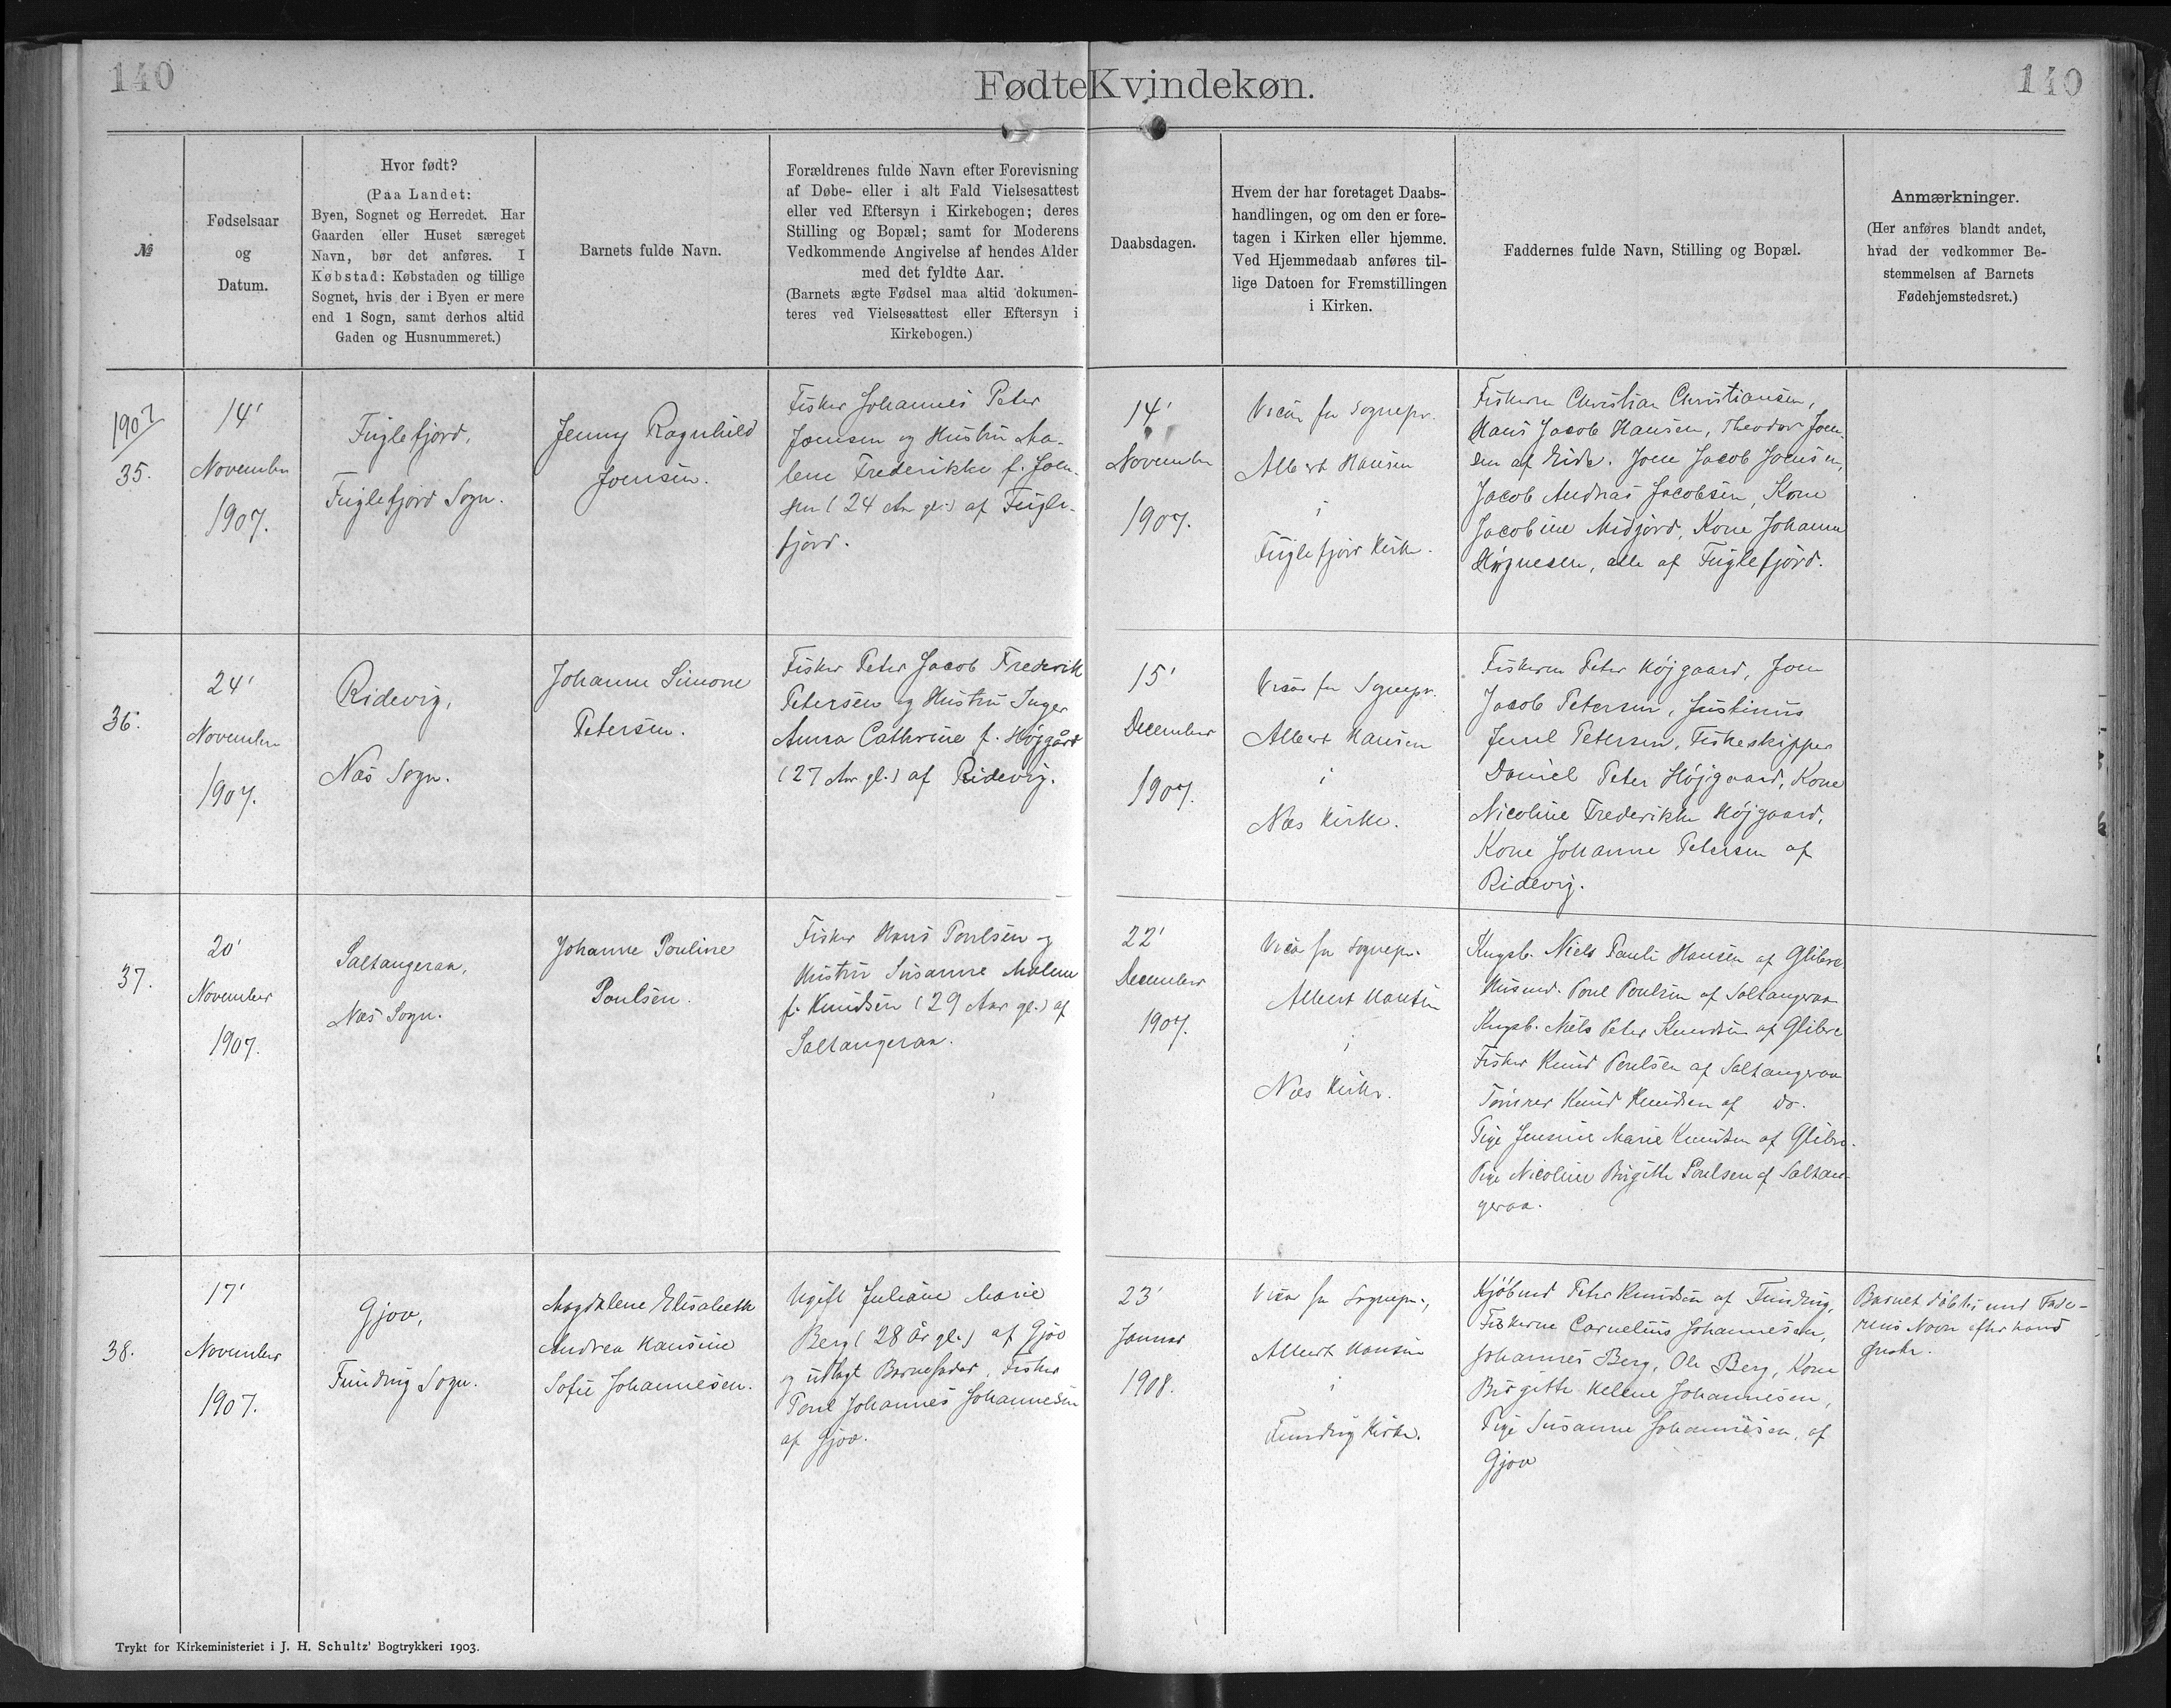 140
Fødte Kvindekøn.
140
№
Fødselsaar
og
Datum.
Hvor født?
(Paa Landet:
Byen, Sognet og Herredet. Har
Gaarden eller Huset særeget
Navn, bør det anføres. I
Købstad: Købstaden og tillige
Sognet, hvis der i Byen er mere
end 1 Sogn, samt derhos altid
Gaden og Husnummeret.)
Barnets fulde Navn.
Forældrenes fulde Navn efter Forevisning
af Døbe- eller i alt Fald Vielsesattest
eller ved Eftersyn i Kirkebogen; deres
Stilling og Bopæl; samt for Moderens
Vedkommende Angivelse af hendes Alder
med det fyldte Aar.
(Barnets ægte Fødsel maa altid dokumen-
teres ved Vielsesattest eller Eftersyn i
Kirkebogen.)
Daabsdagen.
Hvem der har foretaget Daabs-
handlingen, og om den er fore-
tagen i Kirken eller hjemme.
Ved Hjemmedaab anføres til-
lige Datoen for Fremstillingen
i Kirken.
Faddernes fulde Navn, Stilling og Bopæl.
Anmærkninger.
(Her anføres blandt andet,
hvad der vedkommer Be-
stemmelsen af Barnets
Fødehjemstedsret.)
1907
35.
14'
November
1907.
Fuglefjord,
Fuglefjord Sogn.
Jenny Ragnhild
Joensen.
Fisker Johannes Peter
Joensen og Hustru Ma-
lene Frederikke f. Joen-
sen (24 Aar gl.) af Fugle-
fjord.
14'
November
1907.
Vicar for Sognepr.
Albert Hansen
i
Fuglefjord Kirke.
Fiskerne Christian Christiansen,
Hans Jacob Hansen, Theodor Joen-
sen af Eide. Joen Jacob Joensen,
Jacob Andreas Jacobsen, Kone
Jacobine Midjord, Kone Johanne
Høgnesen, alle af Fuglefjord.
36.
24'
November
1907.
Ridevig,
Næs Sogn.
Johanne Simone
Petersen.
Fisker Peter Jacob Frederik
Petersen og Hustru Inger
Anna Cathrine f. Højgård
(27 Aar gl.) af Ridevig.
15'
December
1907.
Vicar for Sognepr.
Albert Hansen
i
Næs Kirke.
Fiskerne Peter Højgaard, Joen
Jacob Petersen, Justinus
Juul Petersen, Fiskeskipper
Daniel Peter Højgaard, Kone
Nicoline Frederikke Højgaard,
Kone Johanne Petersen af
Ridevig.
37.
20'
November
1907.
Saltangeraa,
Næs Sogn.
Johanne Pouline
Poulsen.
Fisker Hans Poulsen og
Hustru Susanne Malene
f. Knudsen (29 Aar gl.) af
Saltangeraa.
22'
December
1907.
Vicar for Sognepr.
Albert Hansen
i
Næs Kirke.
Kngsb. Niels Pauli Hansen af Glibre
Husmd. Poul Poulsen af Saltangeraa
Kngsb. Niels Peter Knudsen af Glibre
Fisker Knud Poulsen af Saltangeraa
Tømrer Knud Knudsen af do.
Pige Jensine Marie Knudsen af Glibre.
Pige Nicoline Birgitte Poulsen af Saltan-
geraa.
38.
17'
November
1907.
Gjov,
Funding Sogn.
Magdalene Elisabeth
Andrea Hansine
Sofie Johannesen.
Ugift Juliane Marie
Berg (28 År gl.) af Gjov
og udlagt Barnefader, Fisker
Poul Johannes Johannesen
af Gjov.
23'
Januar
1908.
Vicar for Sognepr.,
Albert Hansen
i
Funding Kirke.
Kjøbmd Peter Knudsen af Funding,
Fiskerne Cornelius Johannesen,
Johannes Berg, Ole Berg, Kone
Birgitte Helene Johannesen,
Pige Susanne Johannesen, af
Gjov
Barnet døbtes med Fade-
rens Navn efter hans
Ønske.
Trykt for Kirkeministeriet i J. H. Schultz' Bogtrykkeri 1903.